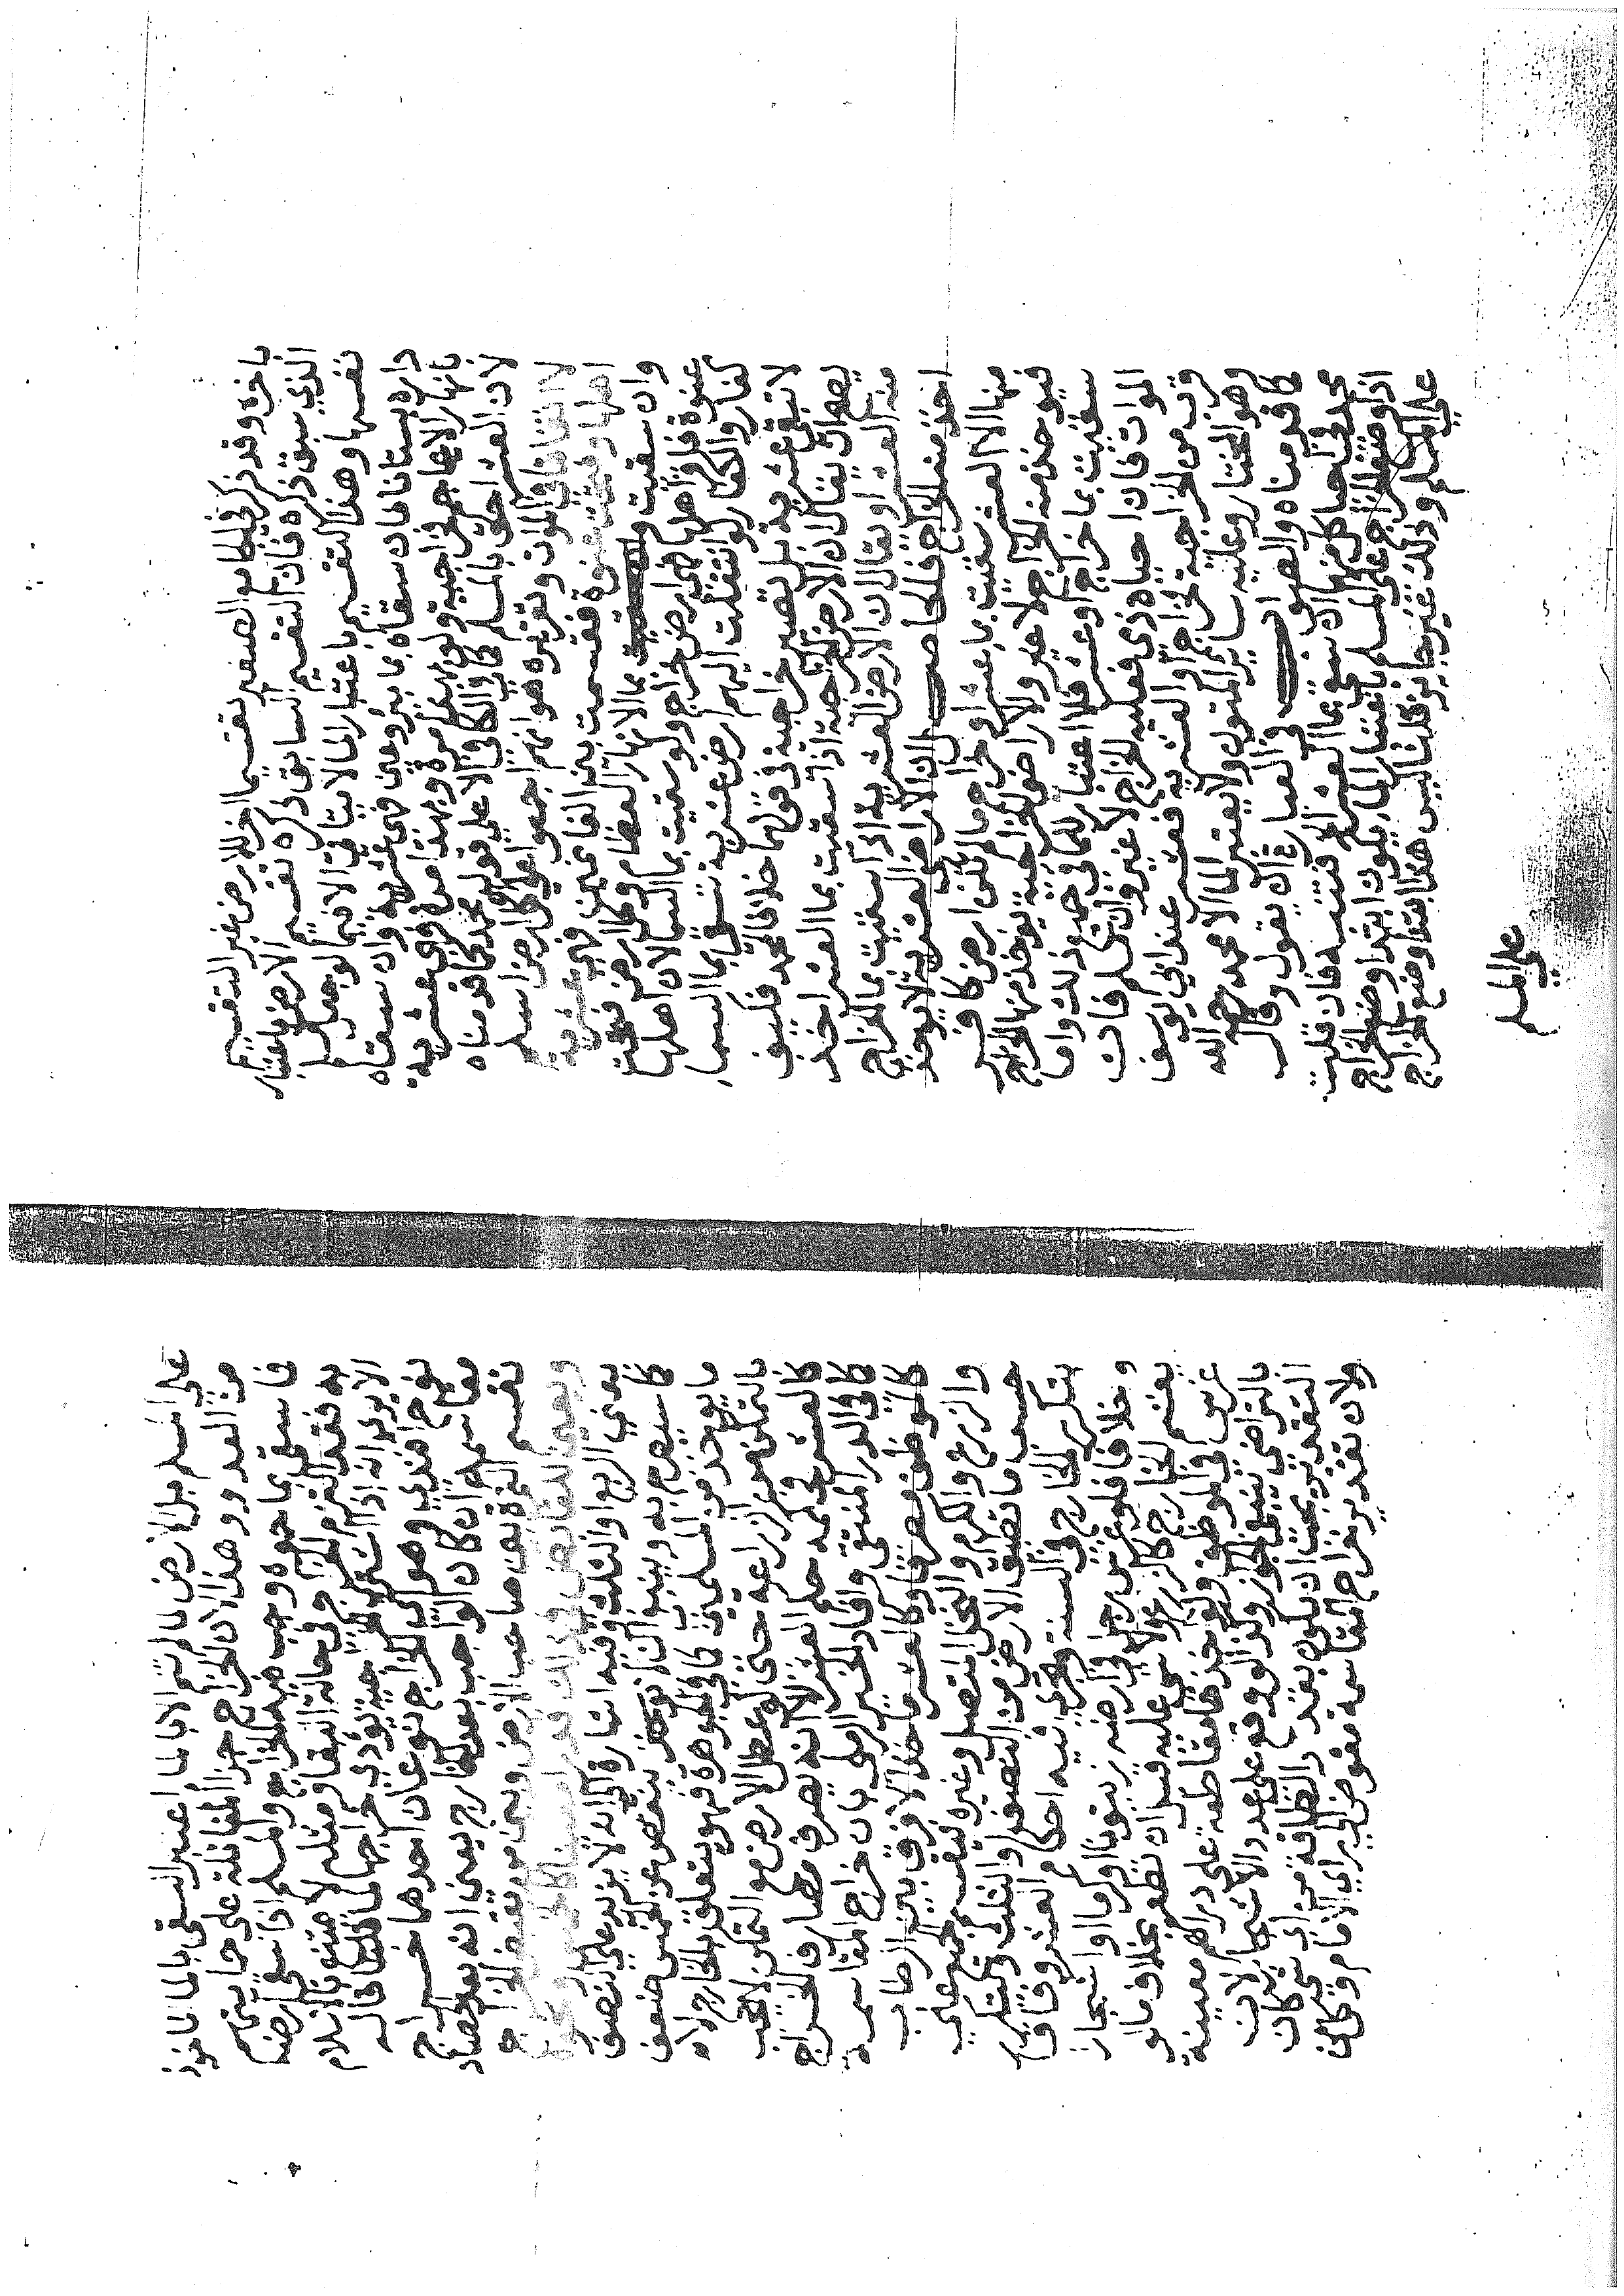 باخره وقد ذكر في الجامع الصغير تقسيما اخر للارض غير التقسيم
الذي سبق ذكره فان التقسيم السابق ذكره تقسيم الارض باعتبار
نفسها وهذا التقسيم باعتبار الما لا يتاتى الا فيما لو جعل مسلم
داره بستانا فان سقاه بما بئر وعين فهي عشرية وان سقاه
بانهار الاعاجم فخراجية ولو بهذا مرة وبهذا مرة فهي عشرية
لان العشر احق بالمسلم كما في الكافي الا على قول محمد كما قدمناه
في الموات وتقريره هو انهم اجمعوا على ان كل ارض اسلم
اهلها او فتحت عنوة فقسمت بين الغانمين فهي عشرية
وان سقيت بما الانهار العظام وكل ارض فتحت
عنوة فاقر اهلها فهي ارض خراج ولو سقيت بما السما لان اهلها
كفار والكفار لو انتقلت اليهم ارض عشرية تسقى بما السما
لا تبقى عشرية بل تصير خراجية في قولهما خلافا لمحمد فكيف
يصح ان يقال ان الارض الخراجية اذا سقيت بما العشر اخذ
منه العشر او يقال ان الارض العشرية اذا سقيت بما الخراج
اخذ منها الخراج فالحاصل ان الاراضي العشرية لا يوخذ
منها الا العشر سقيت بما عشر او خراج ما لم تكن ارض كافر
فيوخذ منه الخراج لا غير والاراضي الخراجية يوخذ منها الخراج
سقيت بما خراج او عشر فلا اعتبار للما في جميع ذلك واما
الموات فان احياه ذمي فعليه الخراج لا غير وان مسلم فان
قرب من الخراجية فخراجي او العشرية فعشر عند ابي يوسف
وهو المختار وعليه ساير المتون ولا يعتبر الما الا محمد رحمه الله
كما قدمناه والصواب في العبارة ان يقول وقال
محمد في احيا كل منها ان سقي بما العشر الخ فتنبه فان قلت
اذا وضع الخراج على المسلم باعتبار الما يكون ابتدا وضع الخراج
على المسلم وذلك غير جايز قلنا ليس هذا ابتدا وضع الخراج
على المسلم
على المسلم برا الارض لما لم تتم الا بالما اعتبر السقي بالما الماخوذ
من العدو وهذا لان الخراج جزا المقاتلة على حمايتهم
فما سقي بما حموه وجب فيه الخراج والمسلم اذا سقى ارضه
به فقد التزم الخراج وفي حالة البقا ومثله لا يمتنع بالاسلام
الا يرى انه اذا اشترى خراجية يودي خراجها لما قلنا قاله
نوح افندي وهو اي الخراج نوعان احدهما خراج
مقاسمة ان كان الواجب بعد الخارج يعني انه بعد الحصاد
تقسم الغرة بين صاحب الارض وبين من يقبض الخراج
يعني الربع والثلث وفيه اشارة الى انه لا يزيد على النصف
كما سيصرح به وينبغي ان لا ينقص عن الخمس
ما يوخذ من المسلمين كما في الجوهرة فهو يتعلق بالخارج لا
بالتمكن من الزراعة حتى لو عطل الارض مع التمكن لا يجب
كالعشر وحكمه حكم العشر الا انه يصرف مصارف الخراج
كما في الدر المنتقى وافاد الخير الرملي بان خراج المقاسمة
كالموظف مصرفا وكالعشر ماخذا لا فرق بين الرطاب
والزرع والكرم والنخل المتصل وغيره فيقسم الجميع على
حسب ما تطيق الارض من النصف والثلث ويتكرر
بتكرر الخارج في السنة ويجري فيه احكام العشر وفاقا
وخلافا فلو غرس رجل في ارضه زيتونا او كرما او اشجارا
يقسم الخارج كالزرع ولا شي عليه قبل ان تطعم بخلاف ما لو
غرس في الموظف ولو اخذها مقاطعة على دراهم معينة
بالتراضي ينبغي الجواز وكذا لو وقع على عدد الاشجار لان
التقدير يجب ان يكون بقدر الطاقة من اي شي كان
ولان تقدير خراج المقاسمة مفوض الى راي الامام